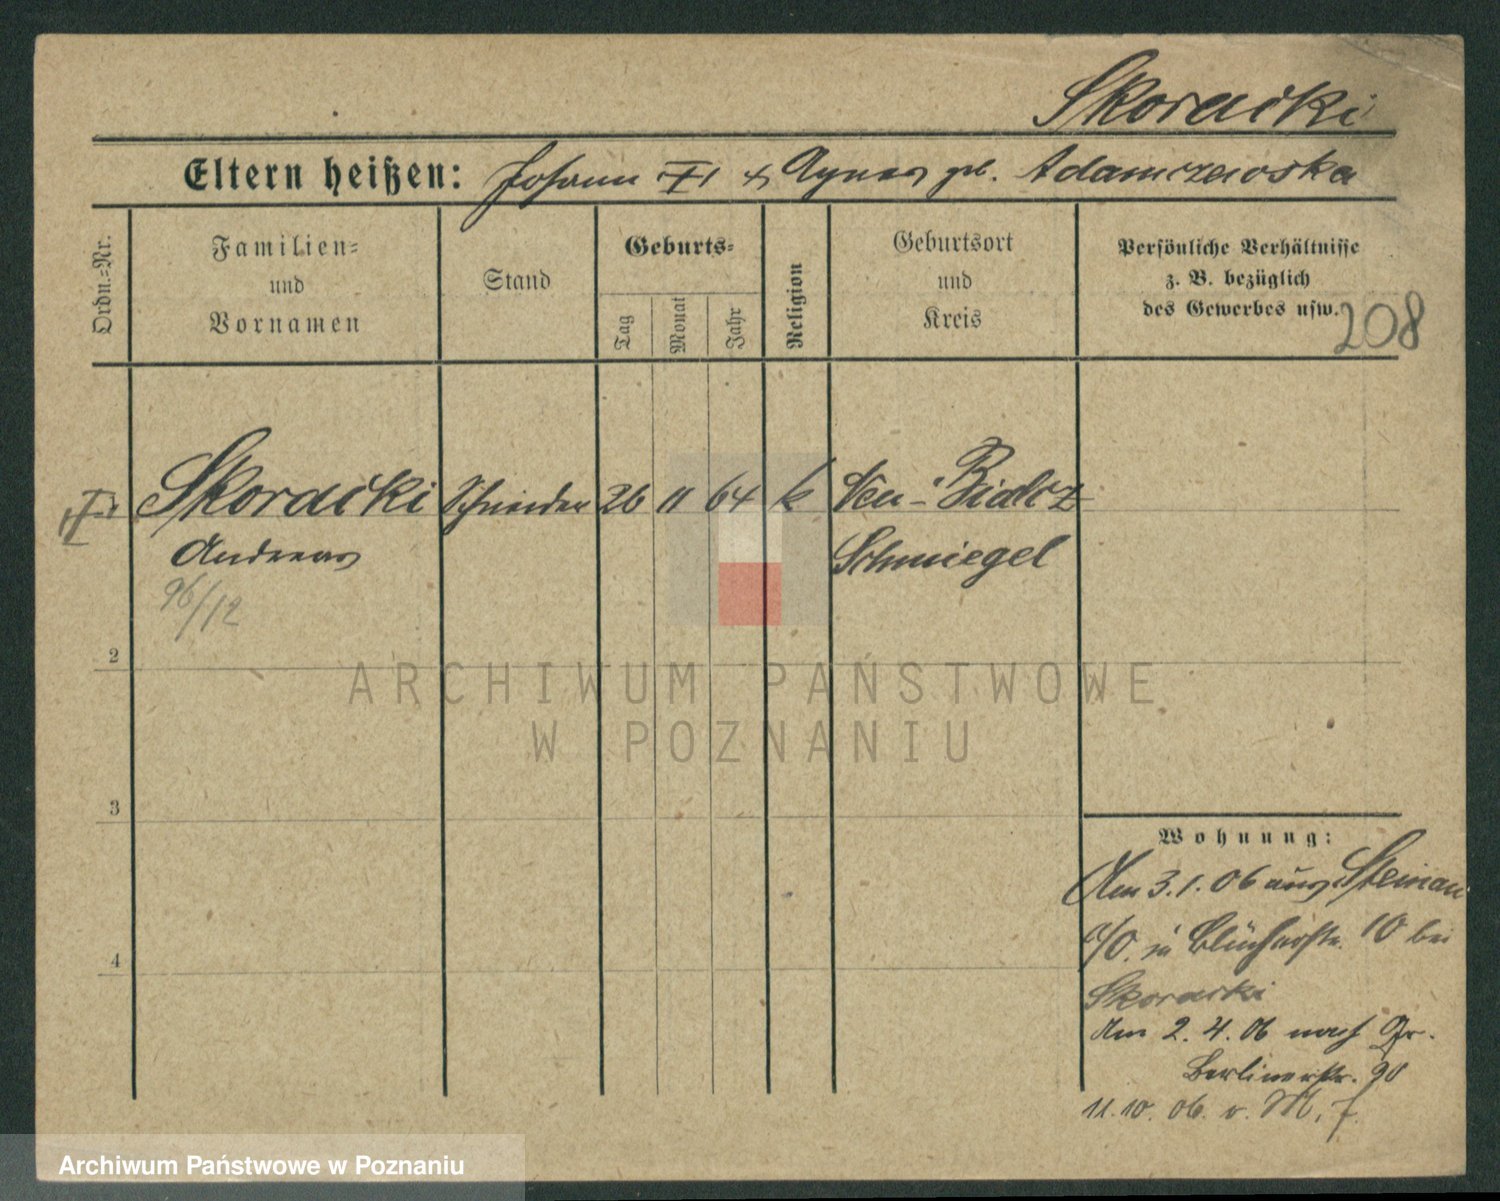 Skoracki
Eltern heißen: Johann + & Agnes geb. Adamczewska
Ordn.=Nr.
Familien=
und
Vornamen
Stand
Geburts=
Tag
Monat
Jahr
Religion
Geburtsort
und
Kreis
Persönliche Verhältnisse
z. B. bezüglich
des Gewerbes usw.
208
Skoracki Schneider 26 11 64 k Neu-Bialcz
Andreas Schmiegel
96/12
2
3
4
Wohnung:
Am 3.1.06 aus Steinau
a/O. in Blücherstr. 10 bei
Skoracki
Am 2.4.06 nach Gr.
Berlinerstr. 90
11.10.06. v. M. f.
ARCHIWUM PAŃSTWOWE
W POZNANIU
Archiwum Państwowe w Poznaniu